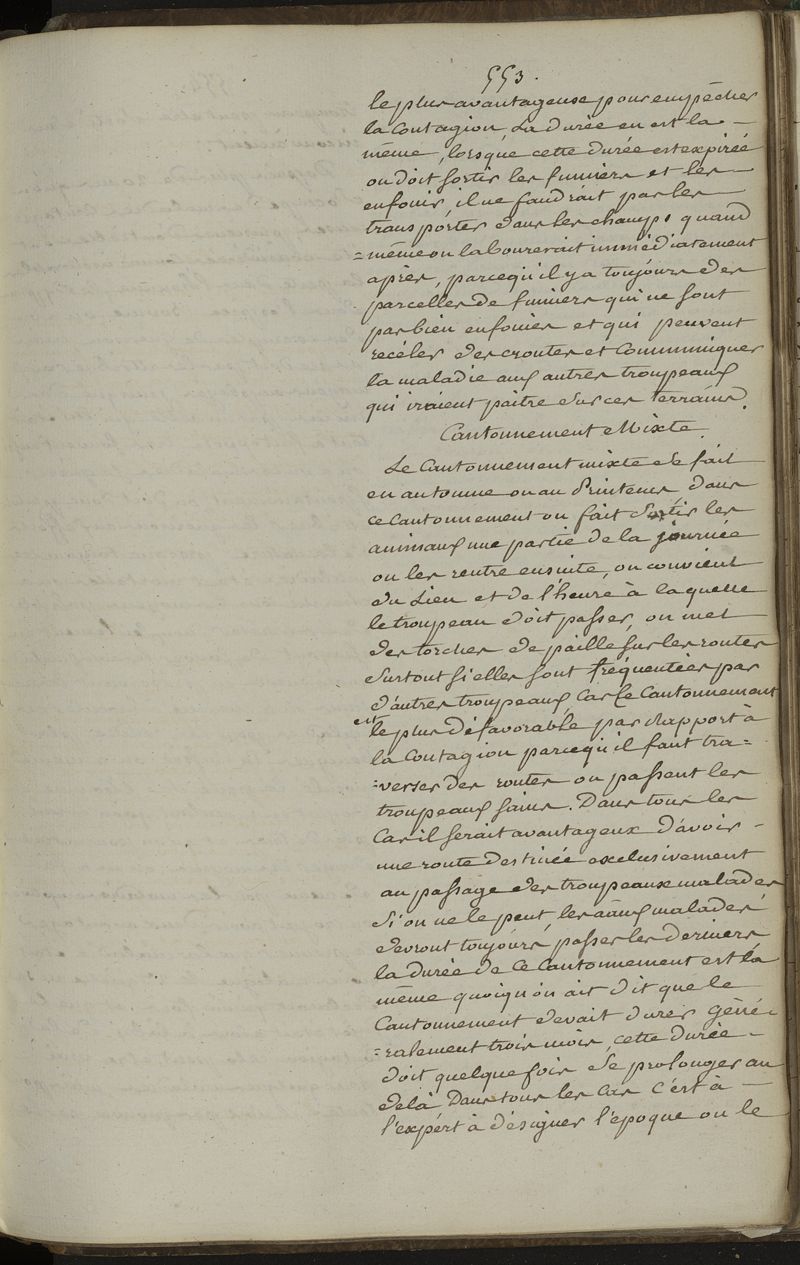 553.
le plus avantageuse pour empêcher
la Contagion, la durée en est la —
même, lorsque cette durée est expirée
on doit sortir les fumiers et les —
enfouir, il ne faudrait pas les —
transporter dans les champs quand
= même on labourerait immédiatement
après, parcequ'il y a toujours des
parcelles de fumiers qui ne sont
pas bien enfouies et qui peuvent
recéler des croutes et Communiquer
la maladie aux autres troupeaux
qui iraient paitre sur ces terrains.
Cantonnement Mixte.
Le Cantonnement mixte se fait
en automne ou au Printems, dans
ce Cantonnement on fait sortir les
animaux une partie de la journée
on les rentre ensuite, on convient
du Lieu et de l'heure à laquelle
le troupeau doit passer, on met
des torches de paille sur les routes
surtout si elles sont fréquentées par
d'autres troupeaux, Car Ce Cantonnement
est le plus défavorable par Rapport à
la Contagion parcequ'il faut tra=
=verser des routes où passent les
troupeaux sains. Dans tous les
Cas il serait avantageux d'avoir —
une route destinée exclusivement
au passage des troupeaux malades
Si on ne le peut, les aâux malades
devront toujours passer les derniers
la durée de Ce Cantonnement est la
même quoiqu'on ait dit que le
Cantonnement devait durer géné-
=ralement trois mois, cette durée —
doit quelque fois se prolonger au
delà Dans tous les Cas C'est à —
l'expert à désigner l'époque ou le